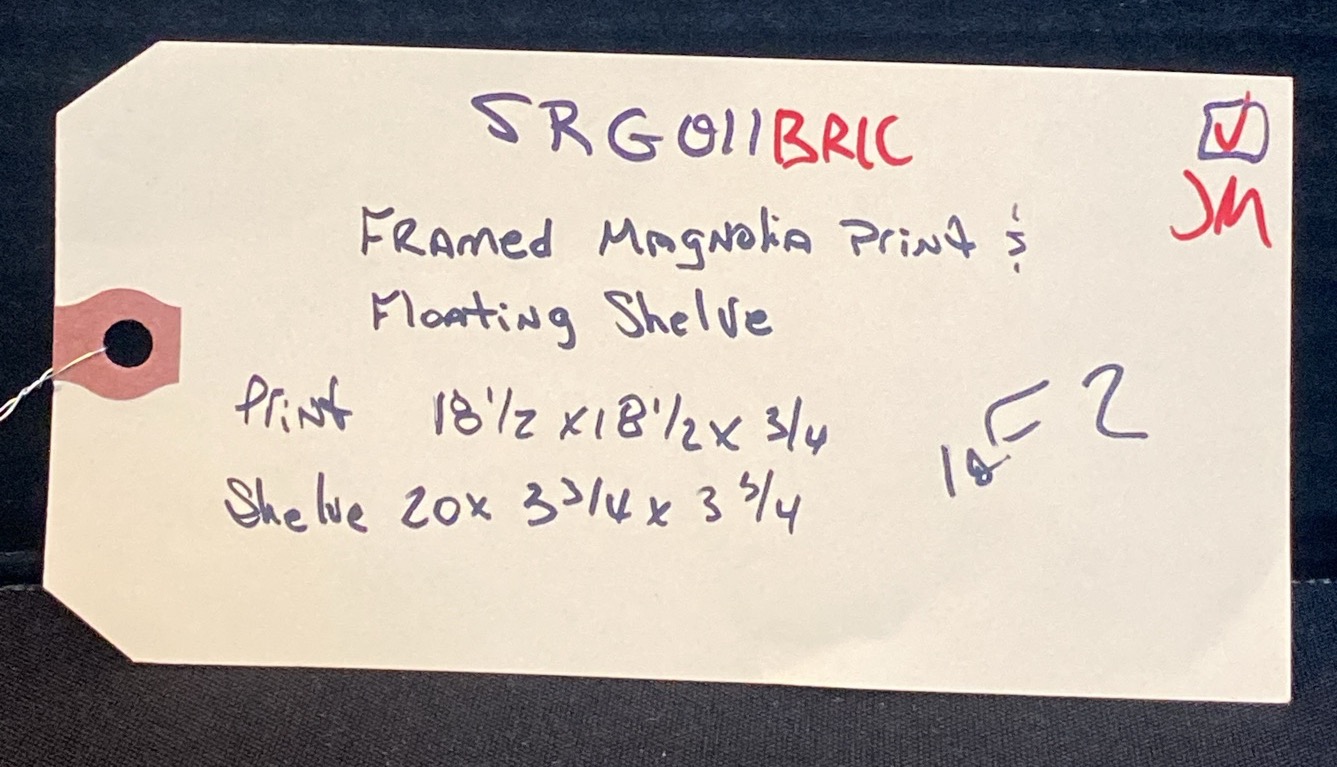 SRG011BRIC
JM
FRAMed MAgNoliA Print &
Floating Shelve
Print 18 1/2 x 18 1/2 x 3/4
Shelve 20x 3 3/4 x 3 3/4
2